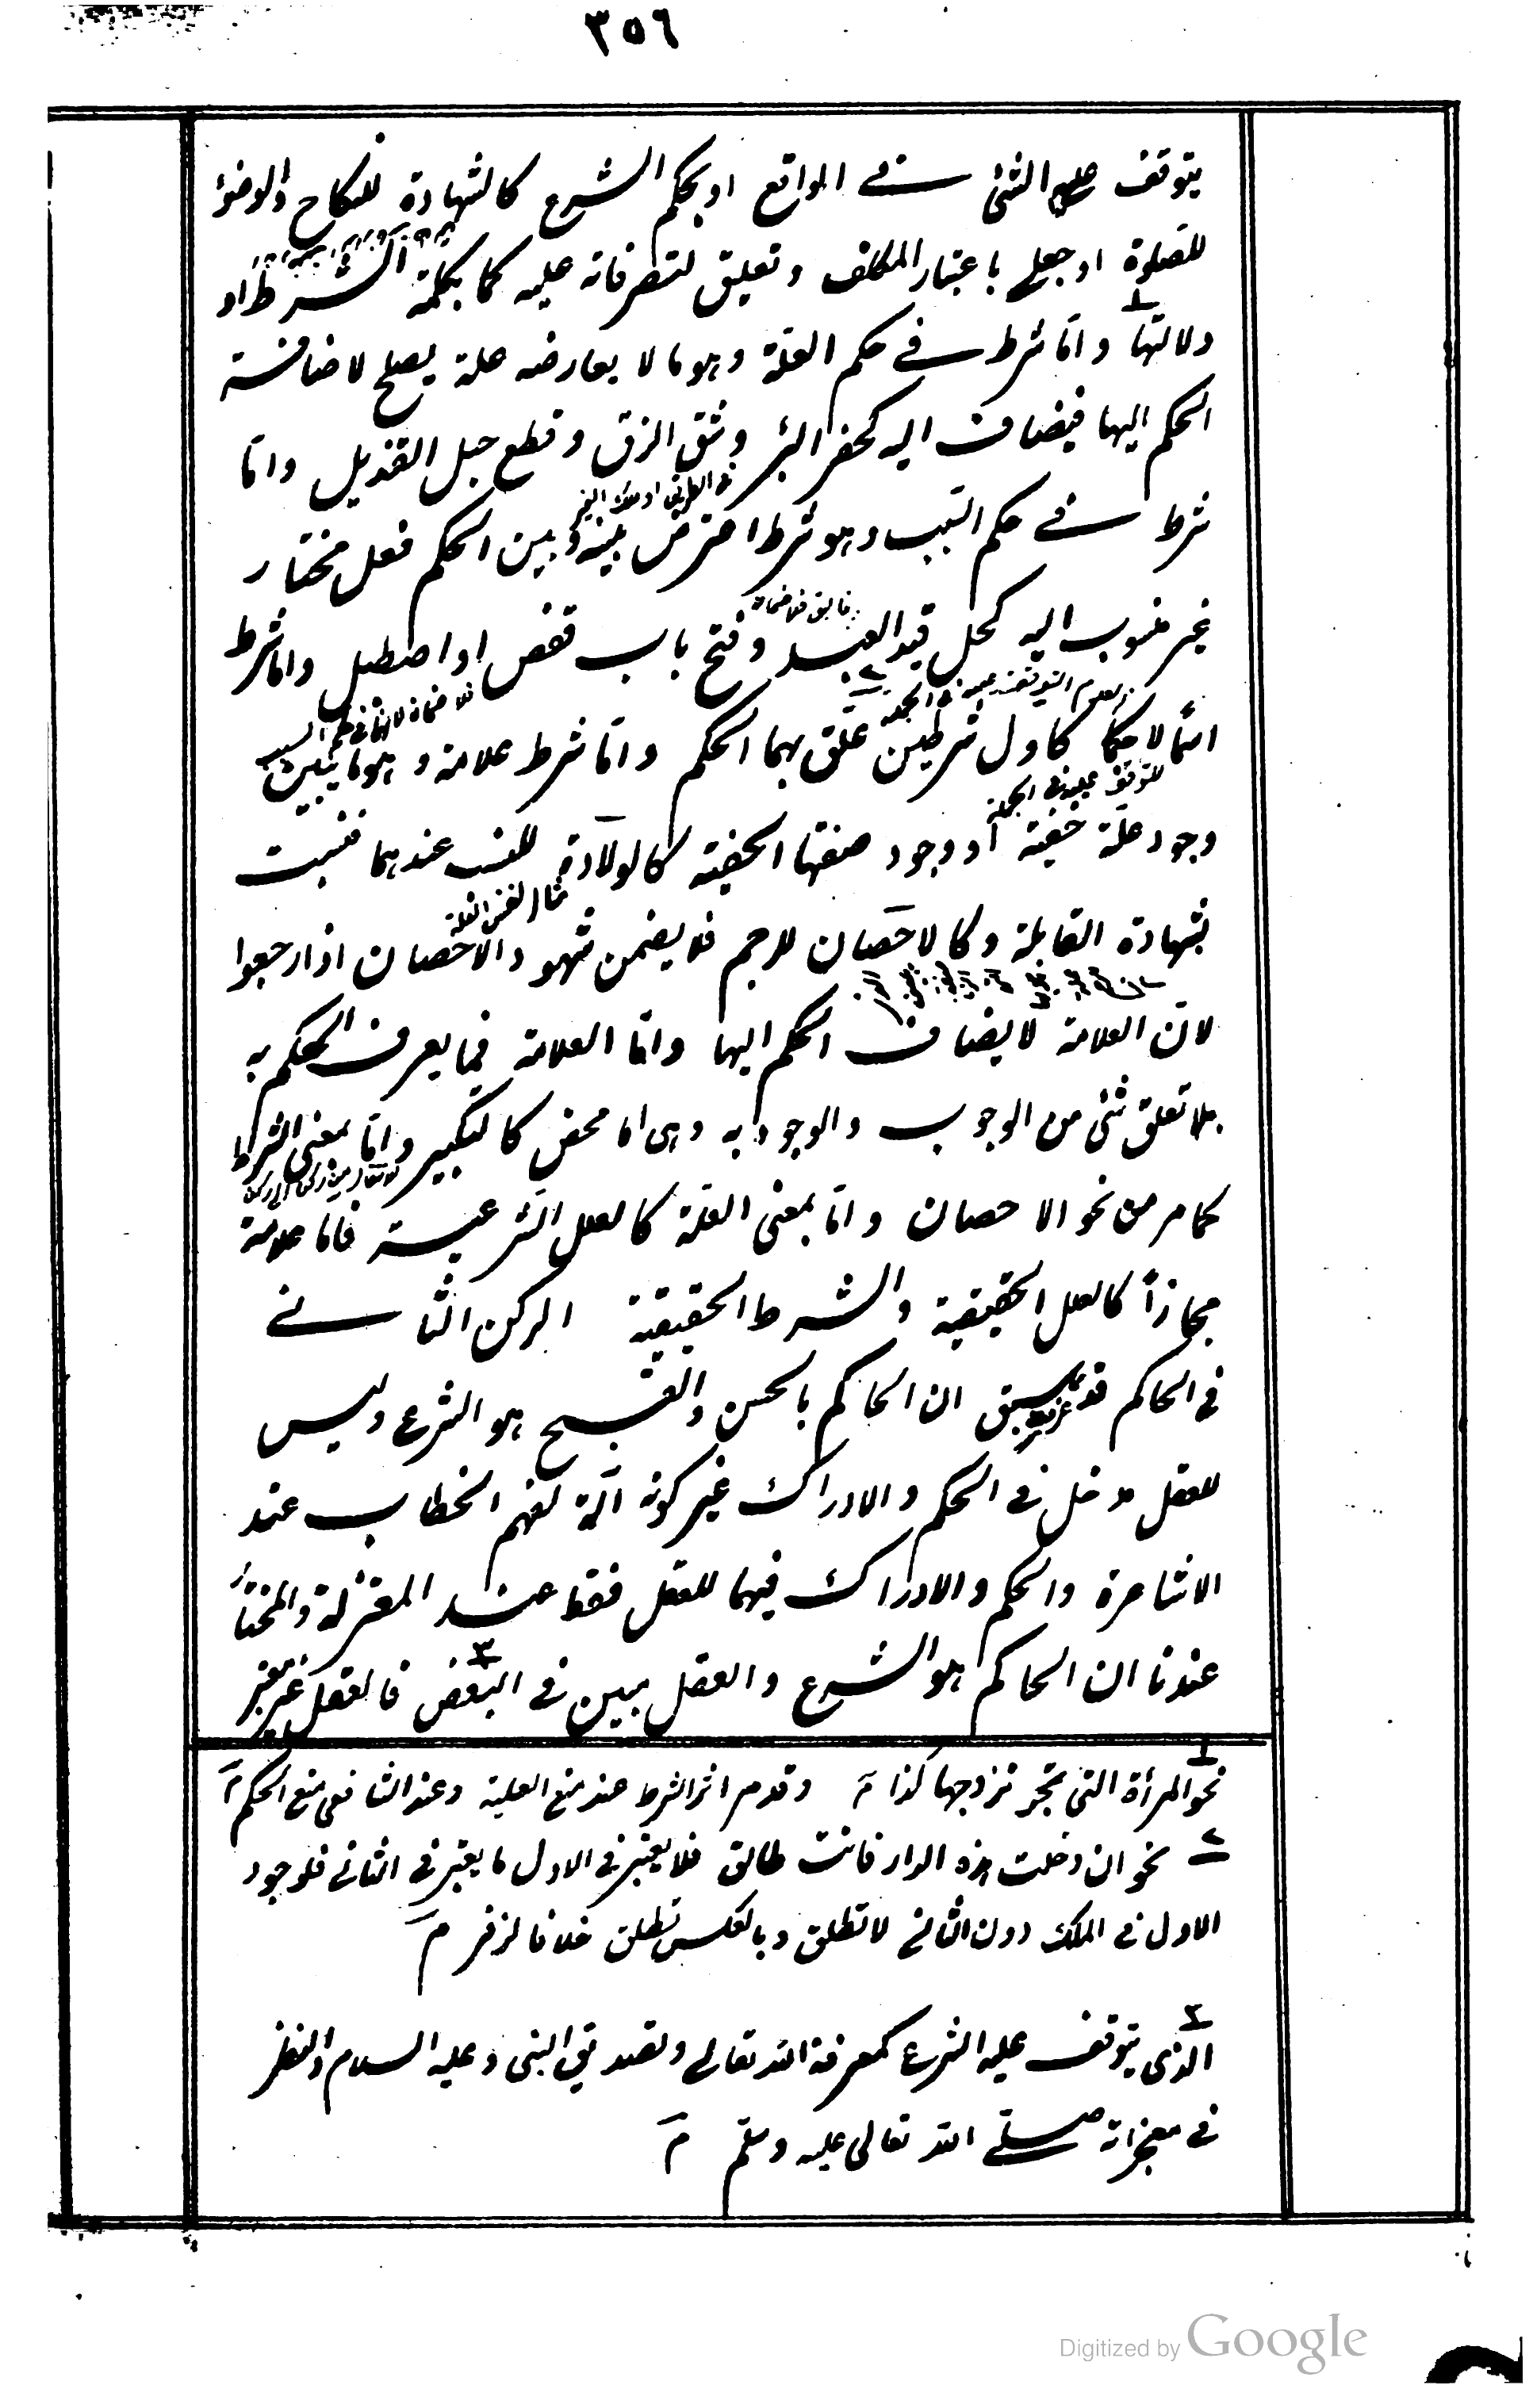 ٣٥٦
يتوقف عليه الشئ في الواقع او بحكم الشرع كالشهادة للنكاح والوضوء
للصلوة او جعلي باعتبار المكلف وتعليق لتصرفاته عليه كما بكلمة الشرط او
دلالتها واما شرط في حكم العلة وهو ما لا يعارضه علة يصلح لاضافة
الحكم اليها فيضاف اليه كحفر البئر وشق الزق وقطع حبل القنديل واما
في الطريق او ملك الغير
شرط في حكم السبب وهو شرط اعترض بينه وبين الحكم فعل مختار
غير منسوب اليه كحل قيد العبد وفتح باب قفص او اصطبل واما شرط
فلا ضمان لانها في حكم السبب
اسما لا حكما كاول شرطين علق بهما الحكم واما شرط علامة وهو ما يبين
للتوقف عليه في الجملة
وجود علة خفية او وجود صفتها الخفية كالولادة للنسب عندهما فثبت
مثال لنفس العلة
بشهادة القابلة وكالاحصان للرجم فلا يضمن شهود الاحصان اذا رجعوا
لان العلامة لا يضاف الحكم اليها واما العلامة فما يعرف الحكم به
بلا تعلق شئ من الوجوب والوجود به وهى اما محض كالتكبير واما بمعنى الشرط
كما مر من نحو الاحصان واما بمعنى العلة كالعلل الشرعية فانها علامة
مجازاً كالعلل الحقيقية والشرط الحقيقية الركن الثاني
في الحاكم قد سبق ان الحاكم بالحسن والقبح هو الشرع وليس
للعقل مدخل في الحكم والادراك غير كونه آلة لفهم الخطاب عند
الاشاعرة والحكم والادراك فيهما للعقل فقط عند المعتزلة والمختار
عندنا ان الحاكم هو الشرع والعقل مبين في البعض ٣ فالعقل غير معتبر
١ نحو المرأة التى تتزوجها كذا م وقد مر اثر الشرط عند منع العلية وعند الشافعى منع الحكم م
٢ نحو ان دخلت هذه الدار فانت طالق فلا يعتبر في الاول ما يعتبر في الثاني فلو وجد
الاول في الملك دون الثاني لا تطلق وبالعكس تطلق خلافا لزفر م
٣ الذى يتوقف عليه الشرع كمعرفة الله تعالى وتصديق النبى وعليه السلام والنظر
في معجزاته صلى الله تعالى عليه وسلم م
Digitized by Google